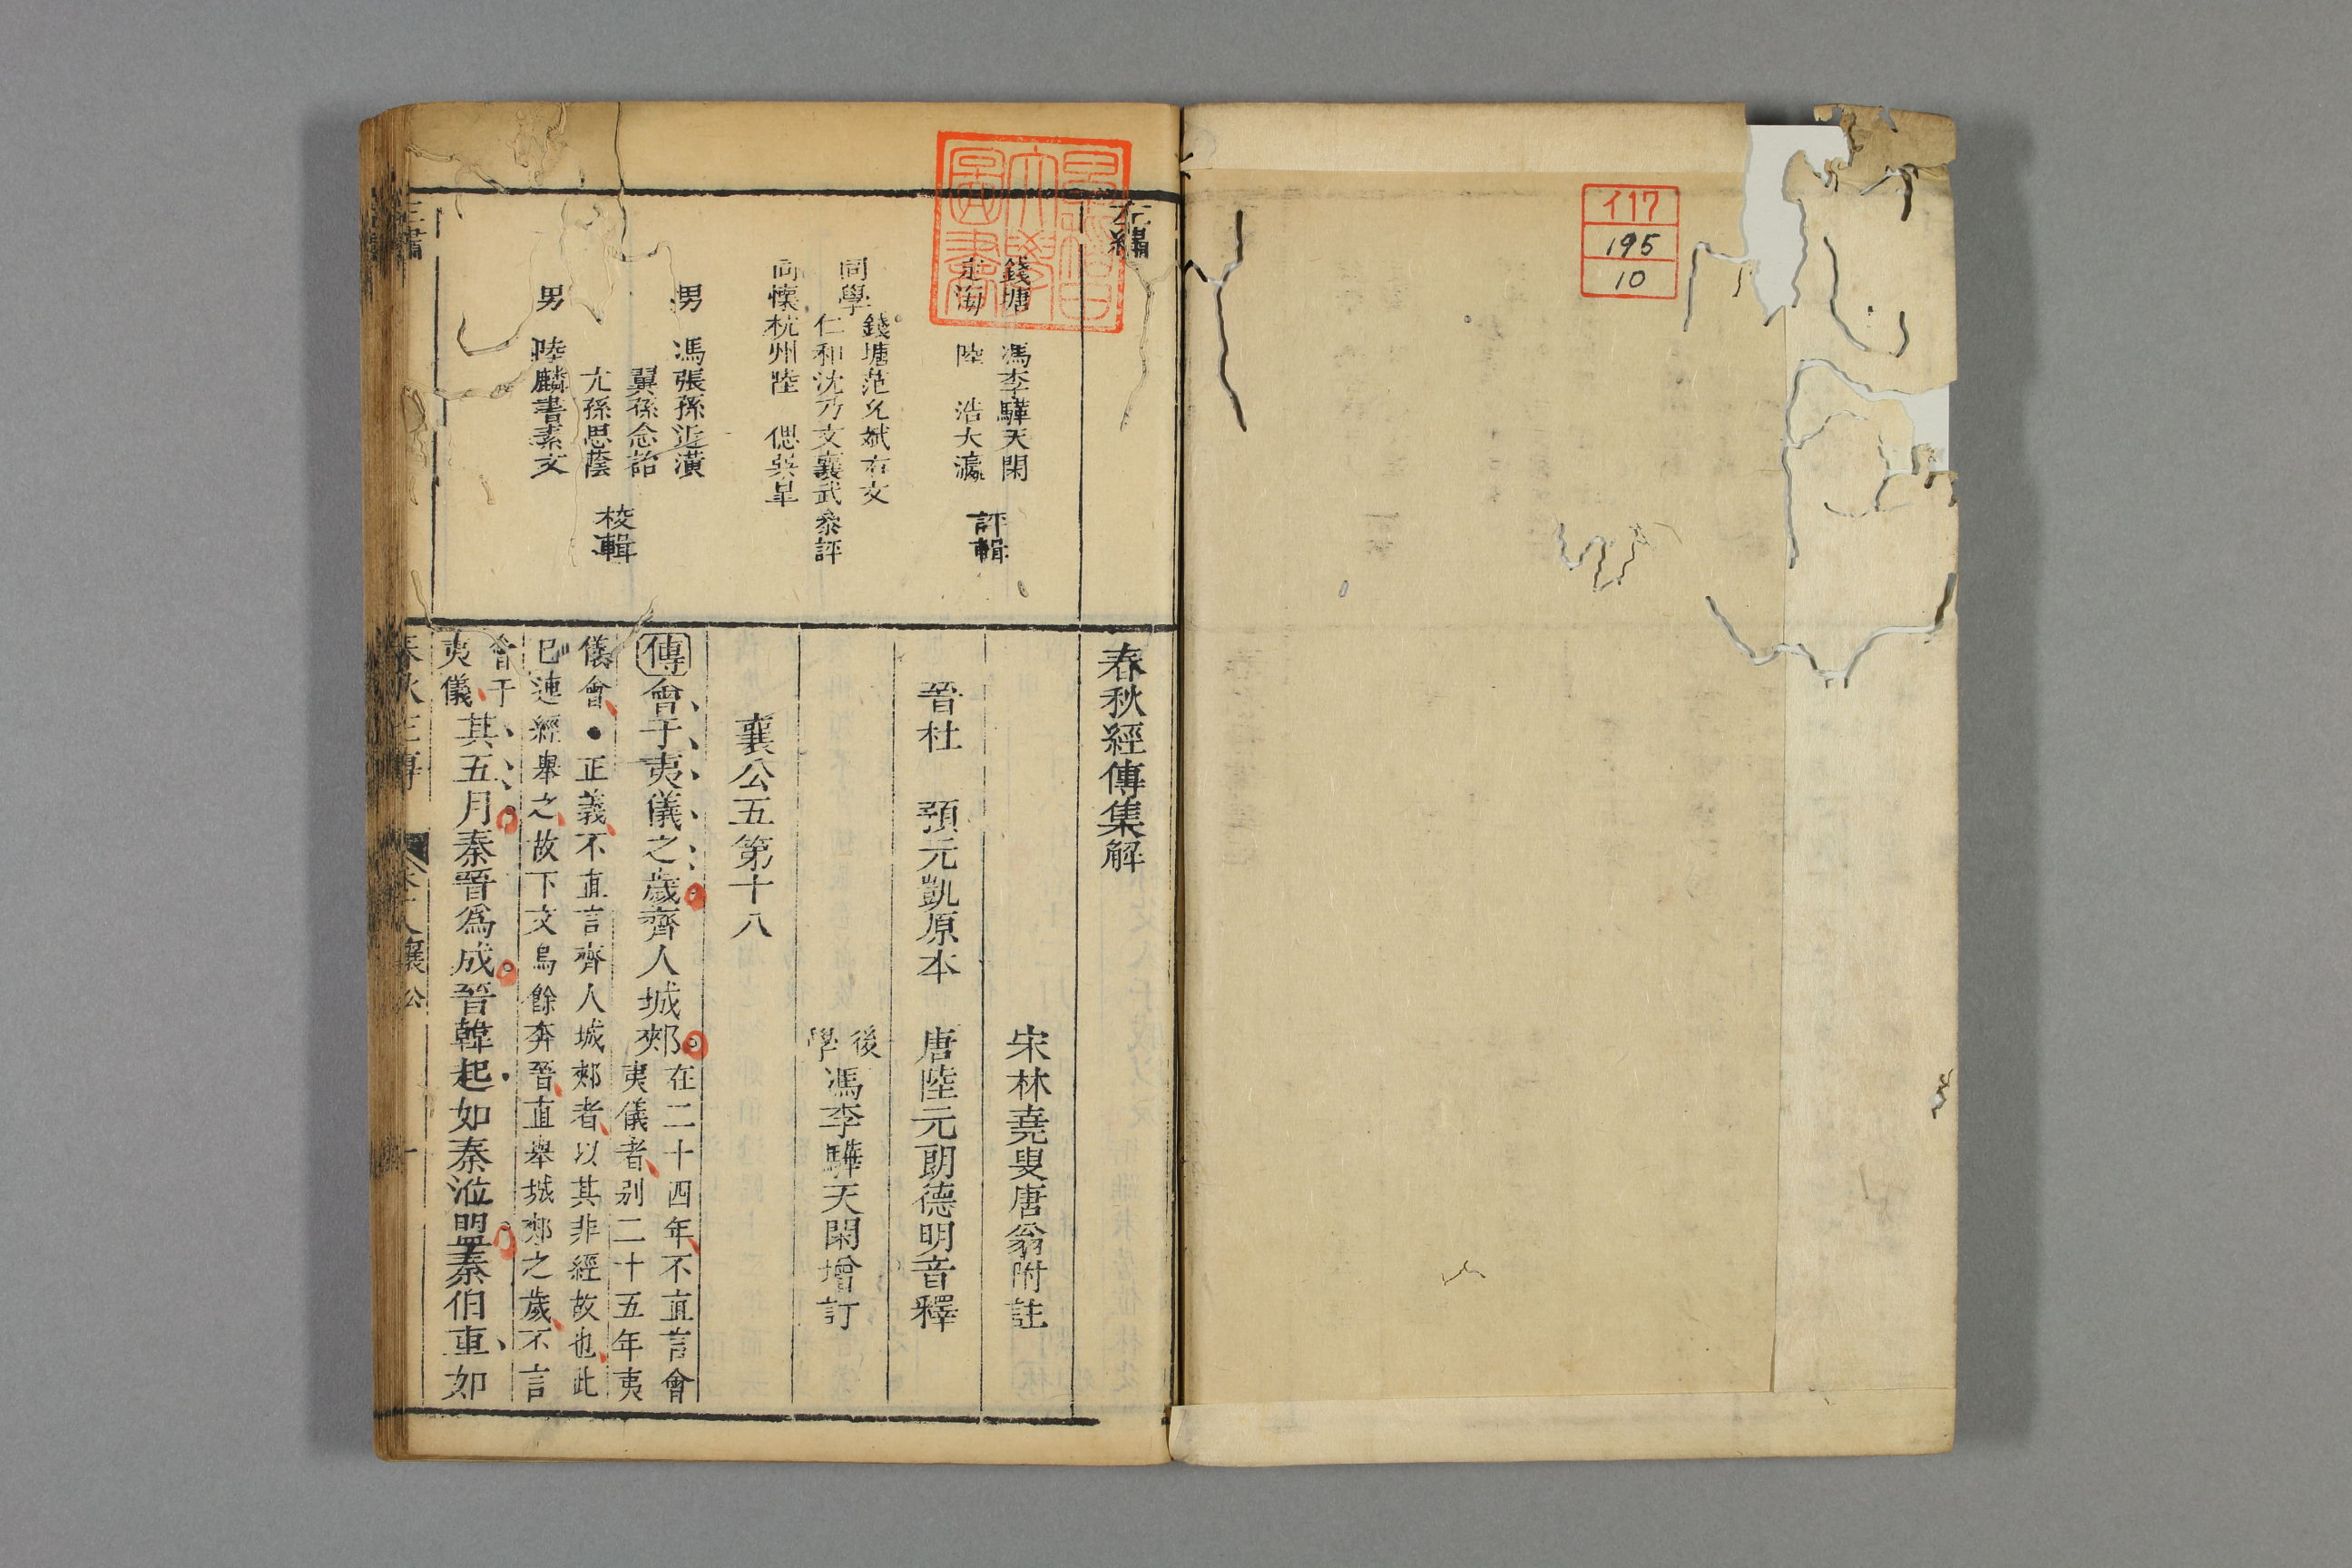 イ17
195
10
早稲田
大學
圖書
左繡
錢塘 馮李驊天閑
定海 陸 浩大瀛
評輯
同學
錢塘范允斌右文
仁和沈乃文襄武
參評
杭州陸 偲吳皐
男 馮張孫近潢
翼孫念詒
尢孫思蔭
校輯
男 陸麟書素文
春秋經傳集解
宋林堯叟唐翁附註
晉杜 預元凱原本 唐陸元朗德明音釋
後學馮李驊天閑增訂
襄公五第十八
傳會于夷儀之歲齊人城郟
在二十四年不直言會
夷儀者別二十五年夷
儀會●正義不直言齊人城郟者以其非經故也此
已連經舉之故下文烏餘奔晉直舉城郟之歲不言
會于
夷儀
其五月秦晉爲成晉韓起如秦涖盟秦伯車如